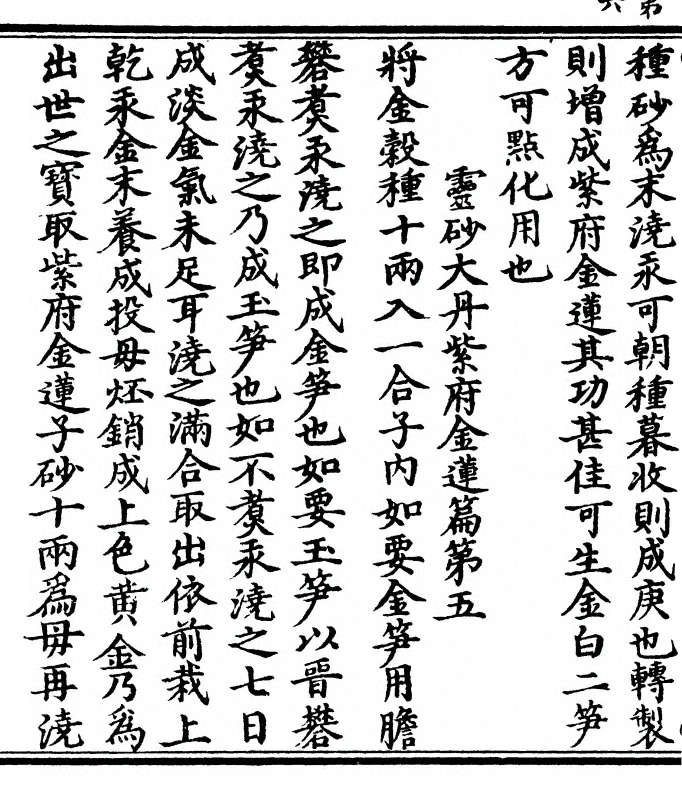 種砂爲末澆汞可朝種暮收則成庚也轉製
則增成紫府金蓮其功甚佳可生金白二笋
方可點化用也
靈砂大丹紫府金蓮篇第五
將金穀種十兩入一合子內如要金笋用膽
礬煑汞澆之即成金笋也如要玉笋以晉礬
煑汞澆之乃成玉笋也如不煑汞澆之七日
成淡金氣未足耳澆之滿合取出依前栽上
乾汞金末養成投母坯銷成上色黃金乃爲
出世之寶取紫府金蓮子砂十兩爲母再澆